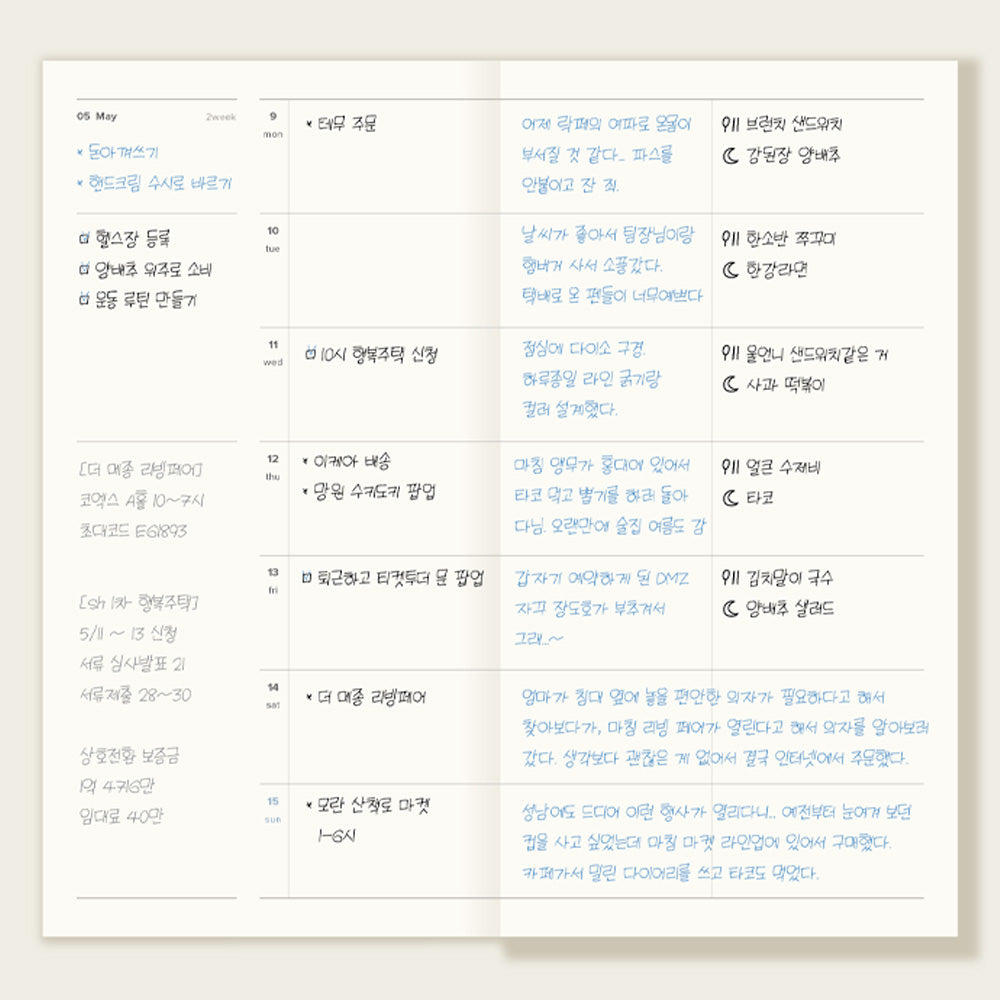 05 May 2week
* 돈아껴쓰기
* 핸드크림 수시로 바르기
헬스장 등록
양배추 위주로 소비
운동 루틴 만들기
[더 메종 리빙페어]
코엑스 A홀 10~7시
초대코드 EG1893
[sh 1차 행복주택]
5/11 ~ 13 신청
서류 심사발표 21
서류제출 28~30
상호전환 보증금
1억 4716만
임대료 40만
9 mon
* 테무 주문
어제 락페의 여파로 온몸이
부서질 것 같다.. 파스를
안붙이고 잔 죄.
브런치 샌드위치
강된장 양배추
10 tue
날씨가 좋아서 팀장님이랑
햄버거 사서 소풍갔다.
택배로 온 펜들이 너무예쁘다
한소반 쭈꾸미
한강라면
11 wed
10시 행복주택 신청
점심에 다이소 구경.
하루종일 라인 굵기랑
컬러 설계했다.
울언니 샌드위치같은 거
사과 떡볶이
12 thu
* 이케아 배송
* 망원 수키도키 팝업
마침 앵무가 홍대에 있어서
타코 먹고 뽑기를 하러 돌아
다님. 오랜만에 술집 여름도 감
얼큰 수제비
타코
13 fri
퇴근하고 티켓투더 문 팝업
갑자기 예약하게 된 DMZ
자꾸 장도호가 부추겨서
그래...~
김치말이 국수
양배추 샐러드
14 sat
* 더 메종 리빙페어
엄마가 침대 옆에 놓을 편안한 의자가 필요하다고 해서
찾아보다가, 마침 리빙 페어가 열린다고 해서 의자를 알아보러
갔다. 생각보다 괜찮은 게 없어서 결국 인터넷에서 주문했다.
15 sun
* 모란 산책로 마켓
1-6시
성남에도 드디어 이런 행사가 열리다니.. 예전부터 눈여겨 보던
컵을 사고 싶었는데 마침 마켓 라인업에 있어서 구매했다.
카페가서 밀린 다이어리를 쓰고 타코도 먹었다.